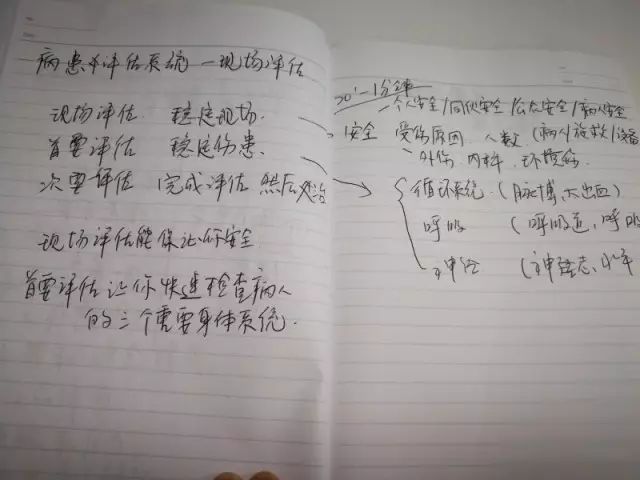 病患评估系统—现场评估
现场评估 稳定现场.
首要评估 稳定伤患.
次要评估 完成评估 然后处治
现场评估能保证你安全
首要评估让你快速检查病人
的三个需要身体系统.
30'—1分钟
个人安全/同伙安全/公众安全/病人安全
安全 受伤原因 人数 (病人/施救/设备
外伤 内科. 环境伤.
循环系统.(脉搏、大出血)
呼吸 (呼吸道,呼吸
神经 (神经志、